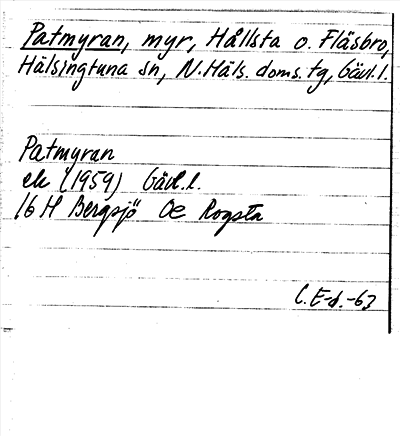 Patmyran, myr, Hållsta o. Fläsbro,
Hälsingtuna sn, N.Häls. doms. tg, Gävl.l.
Patmyran
ek (1959) Gävl.l.
16 H Bergsjö Oe Rogsta
C. E-d.-63